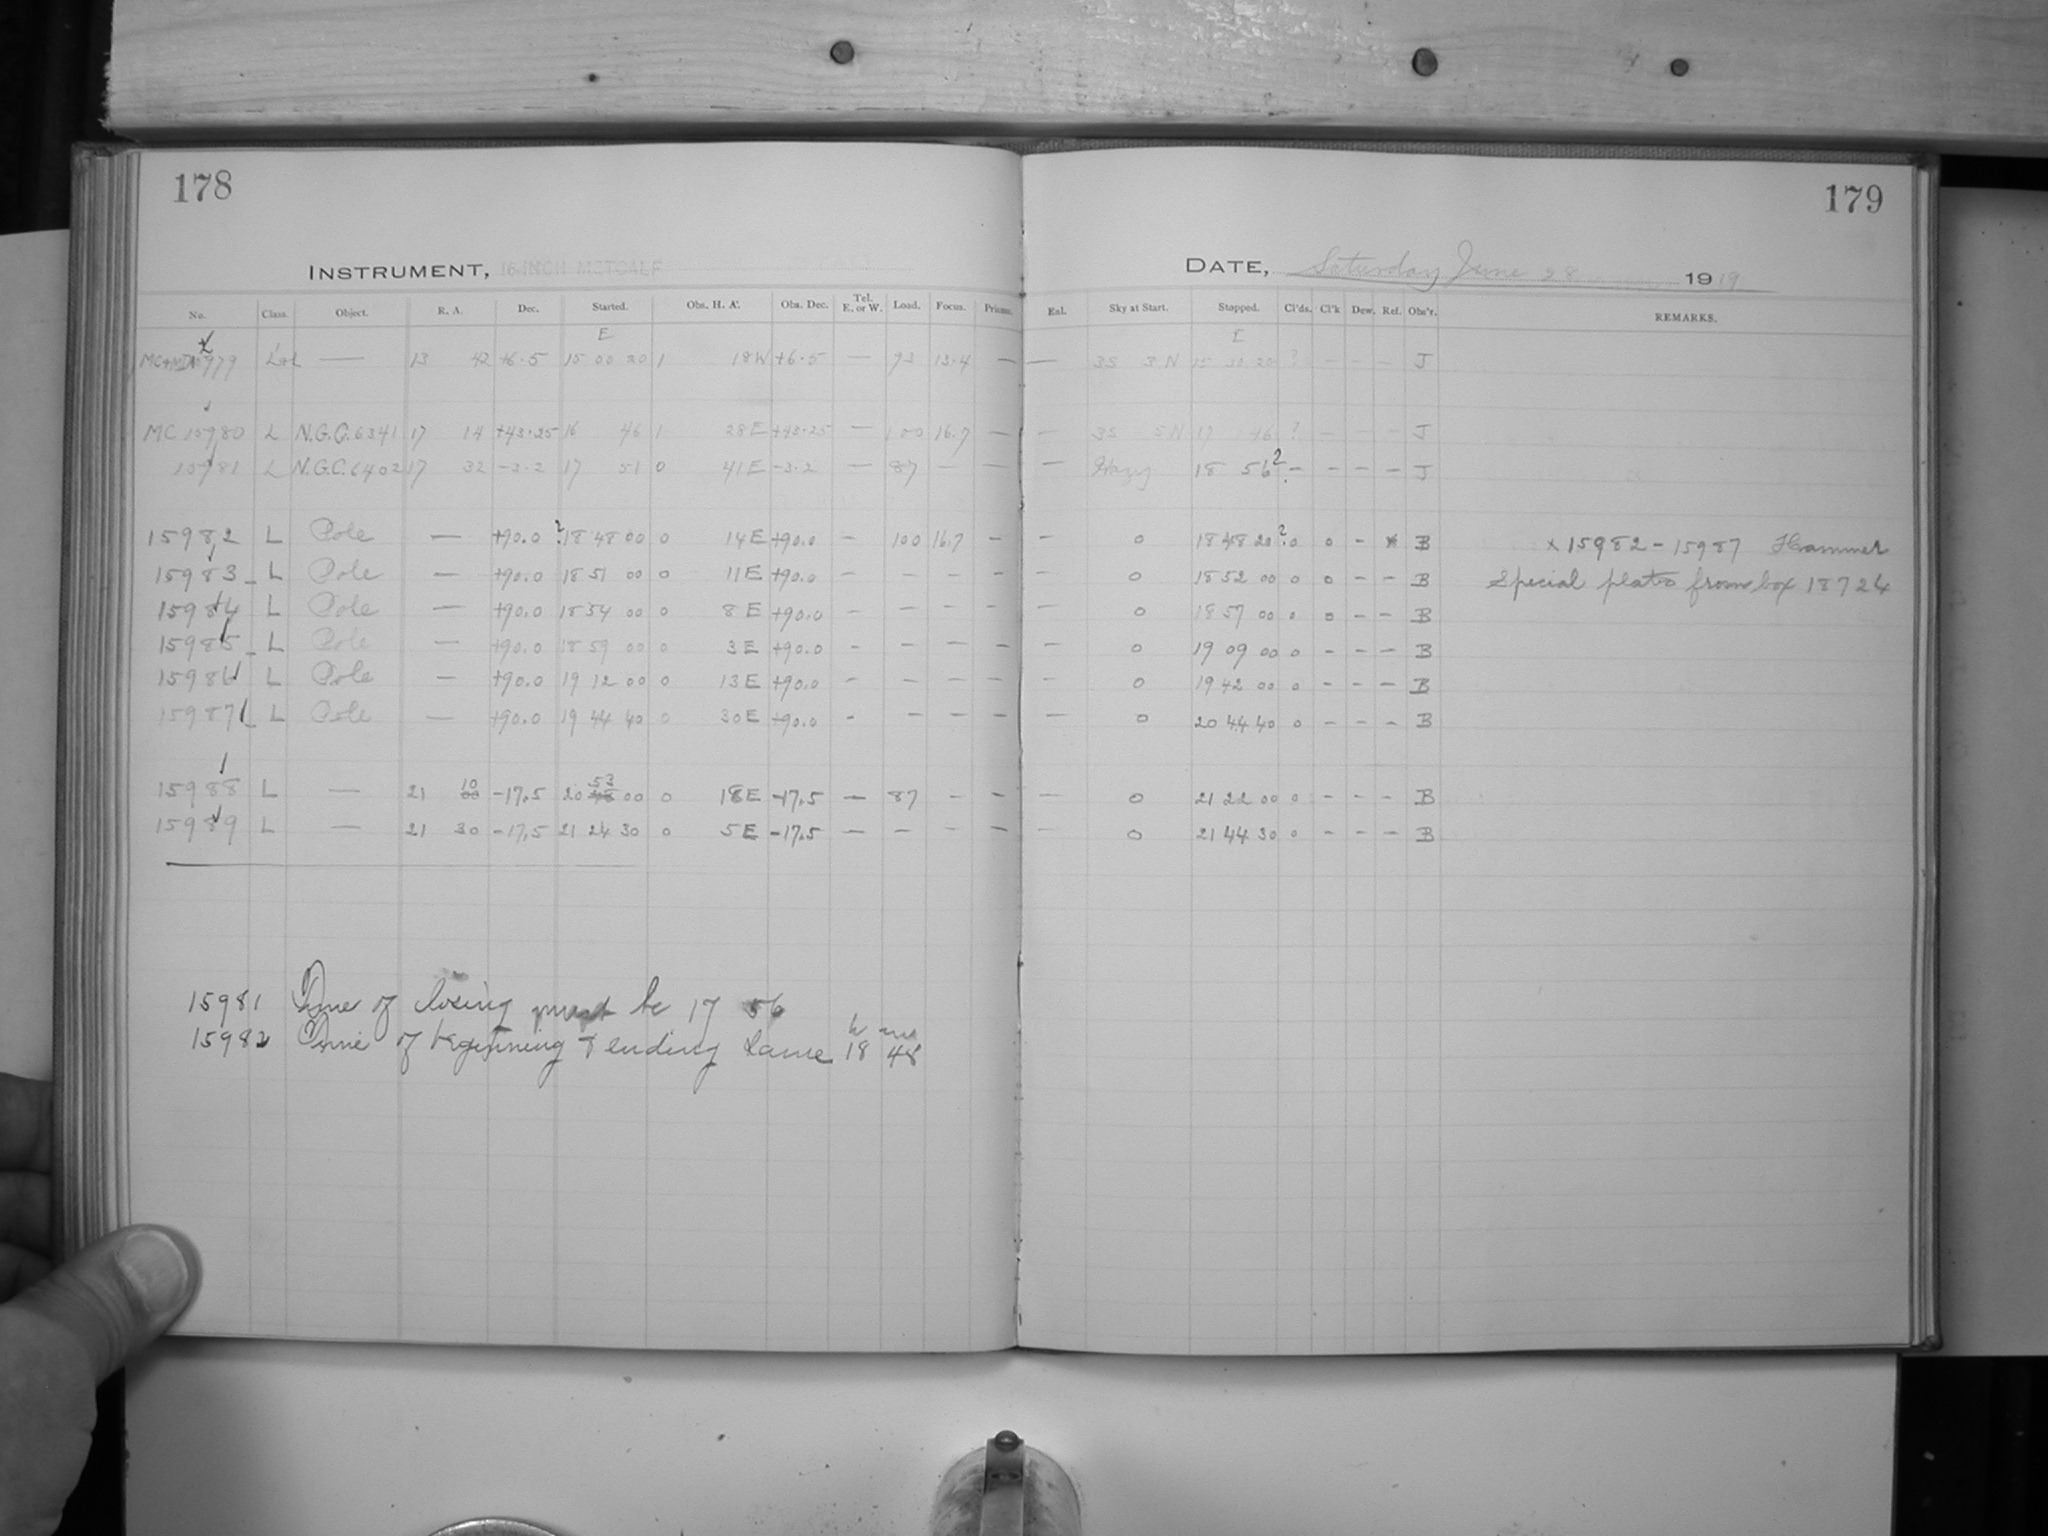 178
INSTRUMENT, 16-INCH METCALF
No. Class. Object. R. A. Dec. Started. Obs. H. A. Obs. Dec. Tel. E. or W. Load. Focus. Prisms.
E
13 42 +6.5 15 00 20 1 18W +6.5 — 93 13.4 —
MC 15980 L N.G.C. 6341 17 14 +43.25 16 46 1 28E +43.25 — 100 16.7 —
15981 L N.G.C. 6402 17 32 -3.2 17 51 0 41E -3.2 — 87 — —
15982 L Pole — +90.0 ? 18 48 00 0 14E +90.0 – 100 16.7 –
15983 L Pole — +90.0 18 51 00 0 11E +90.0 – – – –
15984 L Pole — +90.0 18 54 00 0 8E +90.0 – – – –
15985 L Pole — +90.0 18 59 00 0 3E +90.0 – – – –
15986 L Pole — +90.0 19 12 00 0 13E +90.0 – – – –
15987 L Pole — +90.0 19 44 40 0 30E +90.0 – – – –
15988 L — 21 10 00 -17.5 20 53 48 00 0 18E -17.5 — 87 – –
15989 L — 21 30 -17.5 21 24 30 0 5E -17.5 — – – –
15981 Time of closing must be 17 56
15982 Time of beginning & ending same 18h 48m
179
DATE, Saturday June 28 1919
Enl. Sky at Start. Stopped. Cl'ds. Cl'k Dew. Ref. Obs'r. REMARKS.
E
— 3S 3N 15 30 20 ? – – – J
— 3S 5N 17 46 ? – – – J
— Hazy 18 56 ? – – – – J
– 0 18 48 20 ? 0 0 – x B x 15982 – 15987 Hammer
– 0 18 52 00 0 0 – – B Special plates from box 18724
– 0 18 57 00 0 0 – – B
– 0 19 09 00 0 – – – B
– 0 19 42 00 0 – – – B
— 0 20 44 40 0 – – – B
— 0 21 22 00 0 – – – B
— 0 21 44 30 0 – – – B